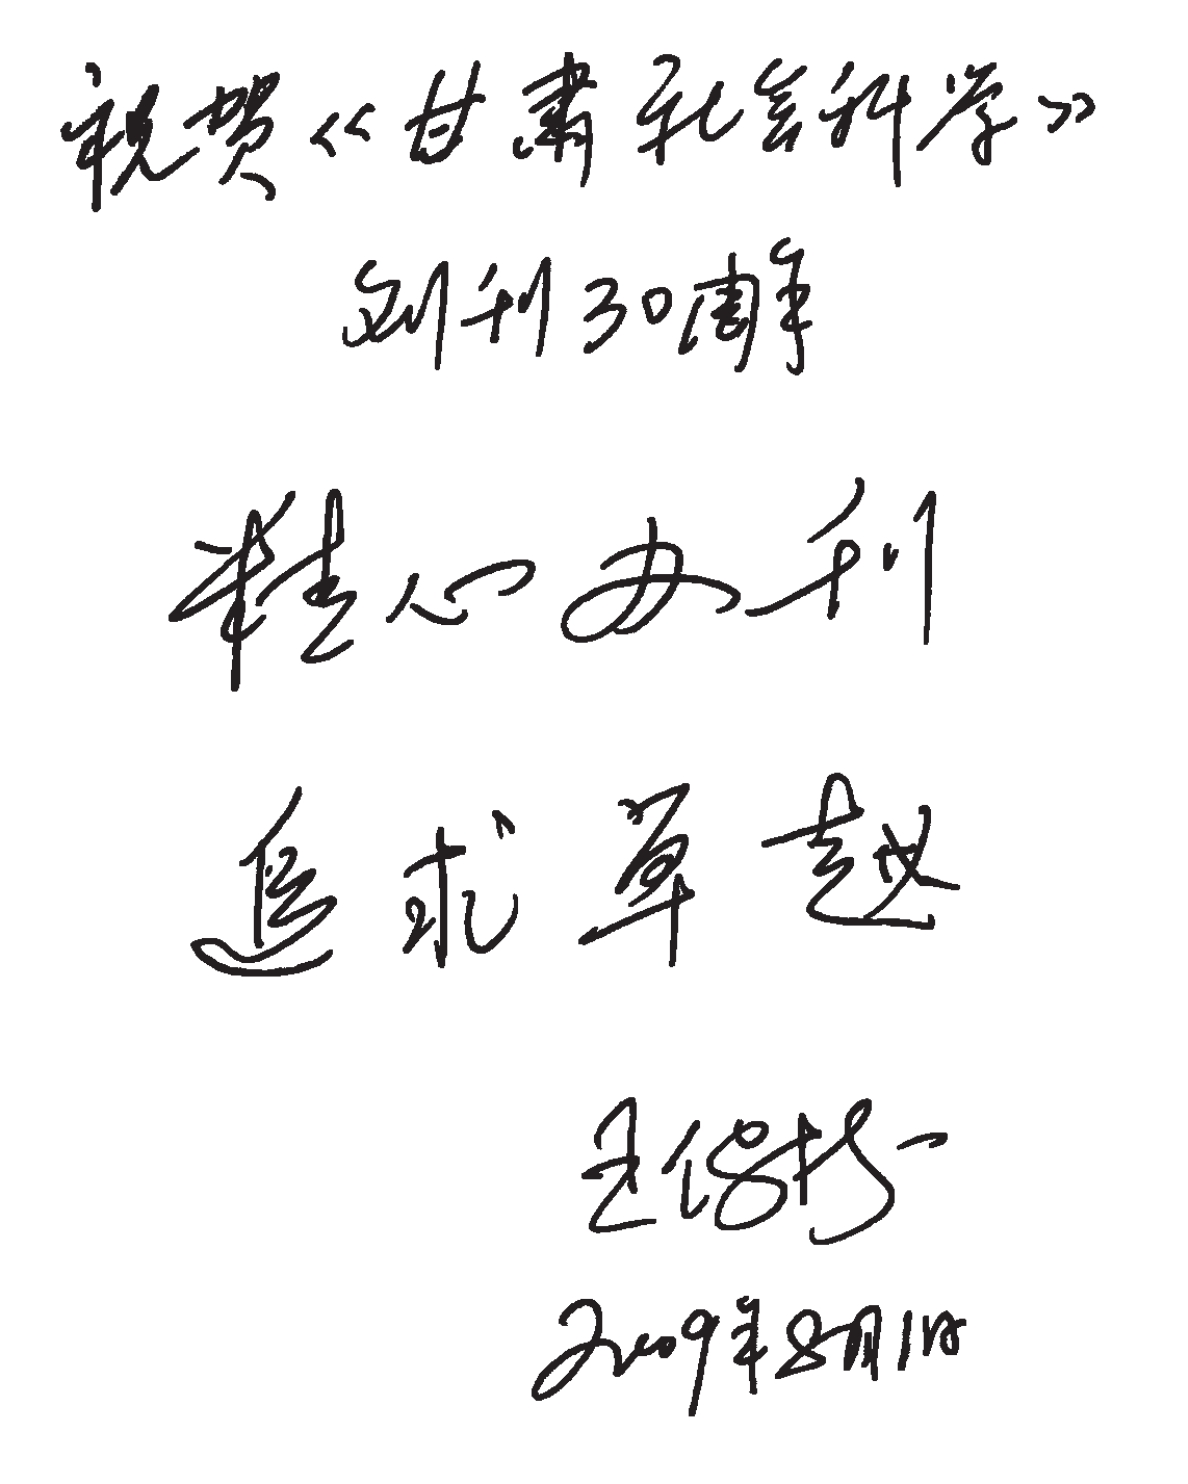 祝贺《甘肃社会科学》
创刊30周年
精心办刊
追求卓越
王
2009年8月1日